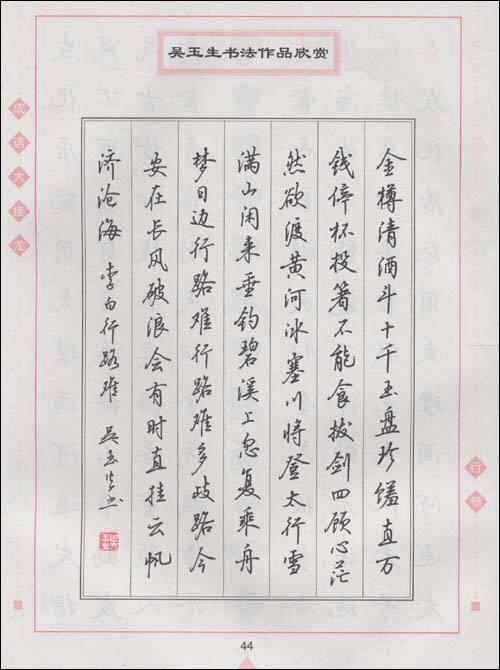 吴玉生书法作品欣赏
金樽清酒斗十千玉盘珍馐直万
钱停杯投箸不能食拔剑四顾心茫
然欲渡黄河冰塞川将登太行雪
满山闲来垂钓碧溪上忽复乘舟
梦日边行路难行路难多歧路今
安在长风破浪会有时直挂云帆
济沧海 李白行路难 吴玉生书
成语大接龙
行楷
44